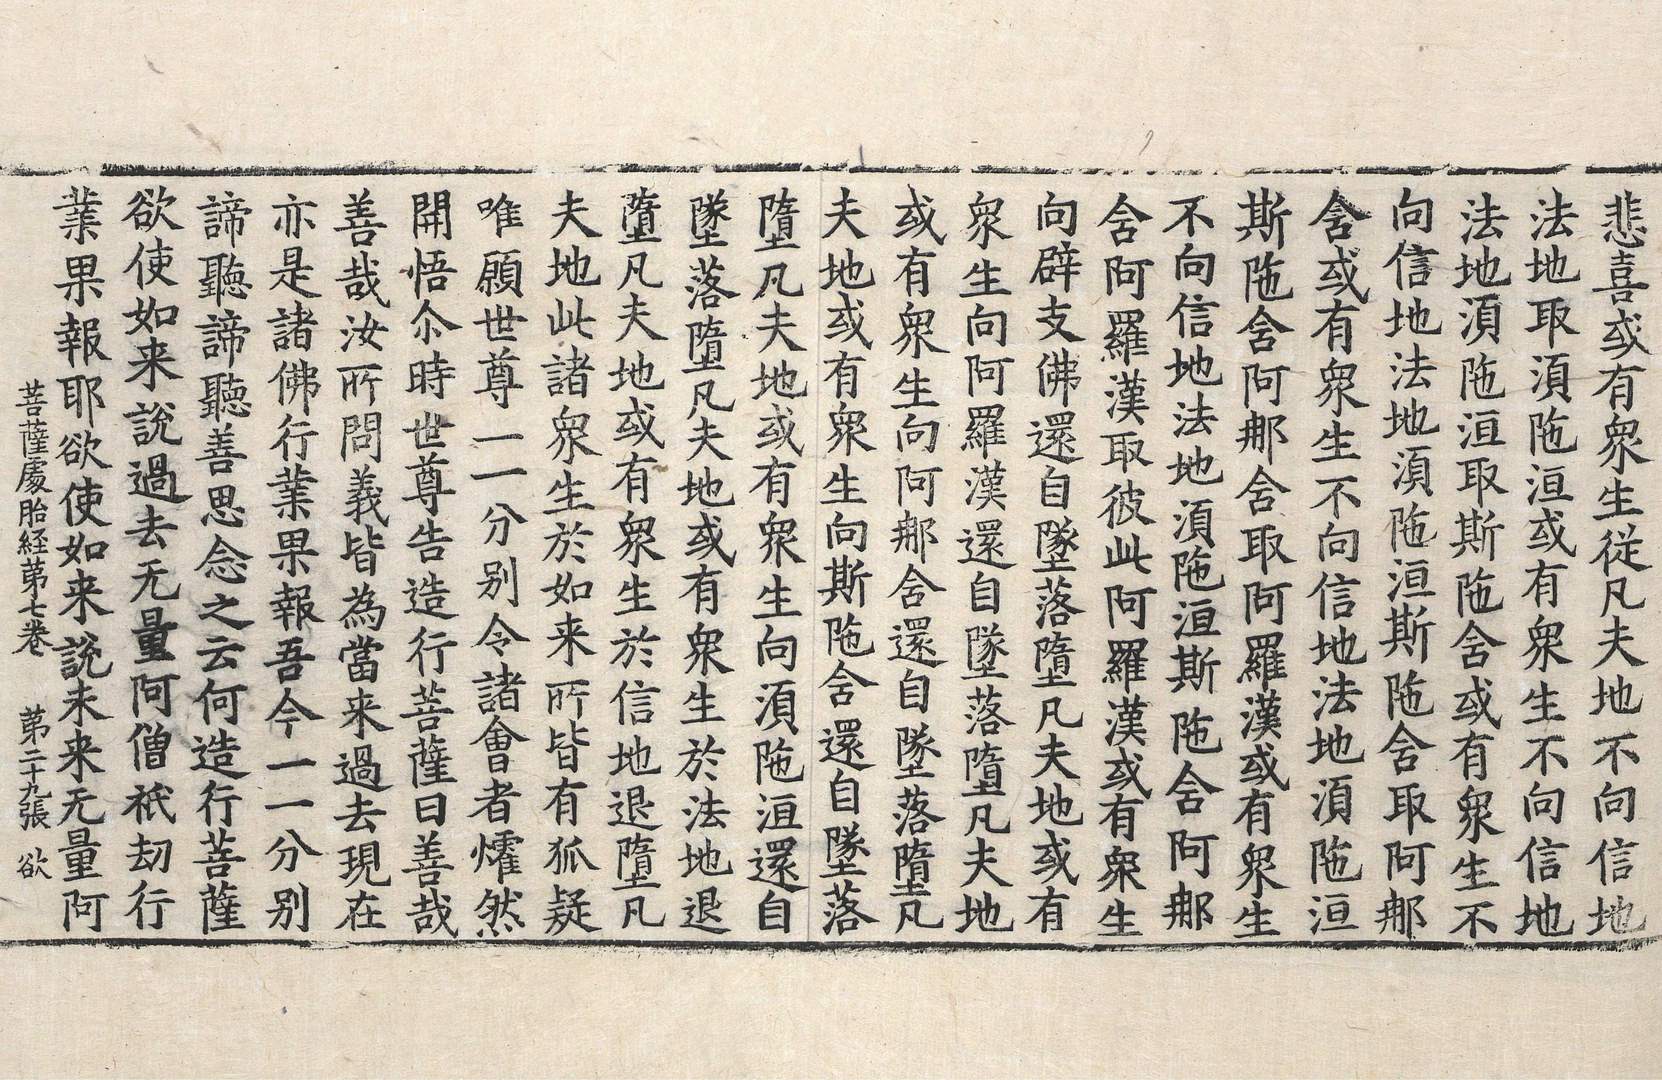 悲喜或有衆生從凡夫地不向信地
法地取湏陁洹或有衆生不向信地
法地湏陁洹取斯陁舍或有衆生不
向信地法地湏陁洹斯陁舍取阿那
舍或有衆生不向信地法地湏陁洹
斯陁舍阿那舍取阿羅漢或有衆生
不向信地法地湏陁洹斯陁舍阿那
舍阿羅漢取彼此阿羅漢或有衆生
向辟支佛還自墜落墮凡夫地或有
衆生向阿羅漢還自墜落墮凡夫地
或有衆生向阿那舍還自墜落墮凡
夫地或有衆生向斯陁舍還自墜落
墮凡夫地或有衆生向湏陁洹還自
墜落墮凡夫地或有衆生於法地退
墮凡夫地或有衆生於信地退墮凡
夫地此諸衆生於如来所皆有狐疑
唯願世尊一一分别令諸會者㸌然
開悟尒時世尊告造行菩薩曰善哉
善哉汝所問義皆為當来過去現在
亦是諸佛行業果報吾今一一分别
諦聽諦聽善思念之云何造行菩薩
欲使如来說過去无量阿僧祇劫行
業果報耶欲使如来說未来无量阿
菩薩處胎経第七卷　第二十九張　欲